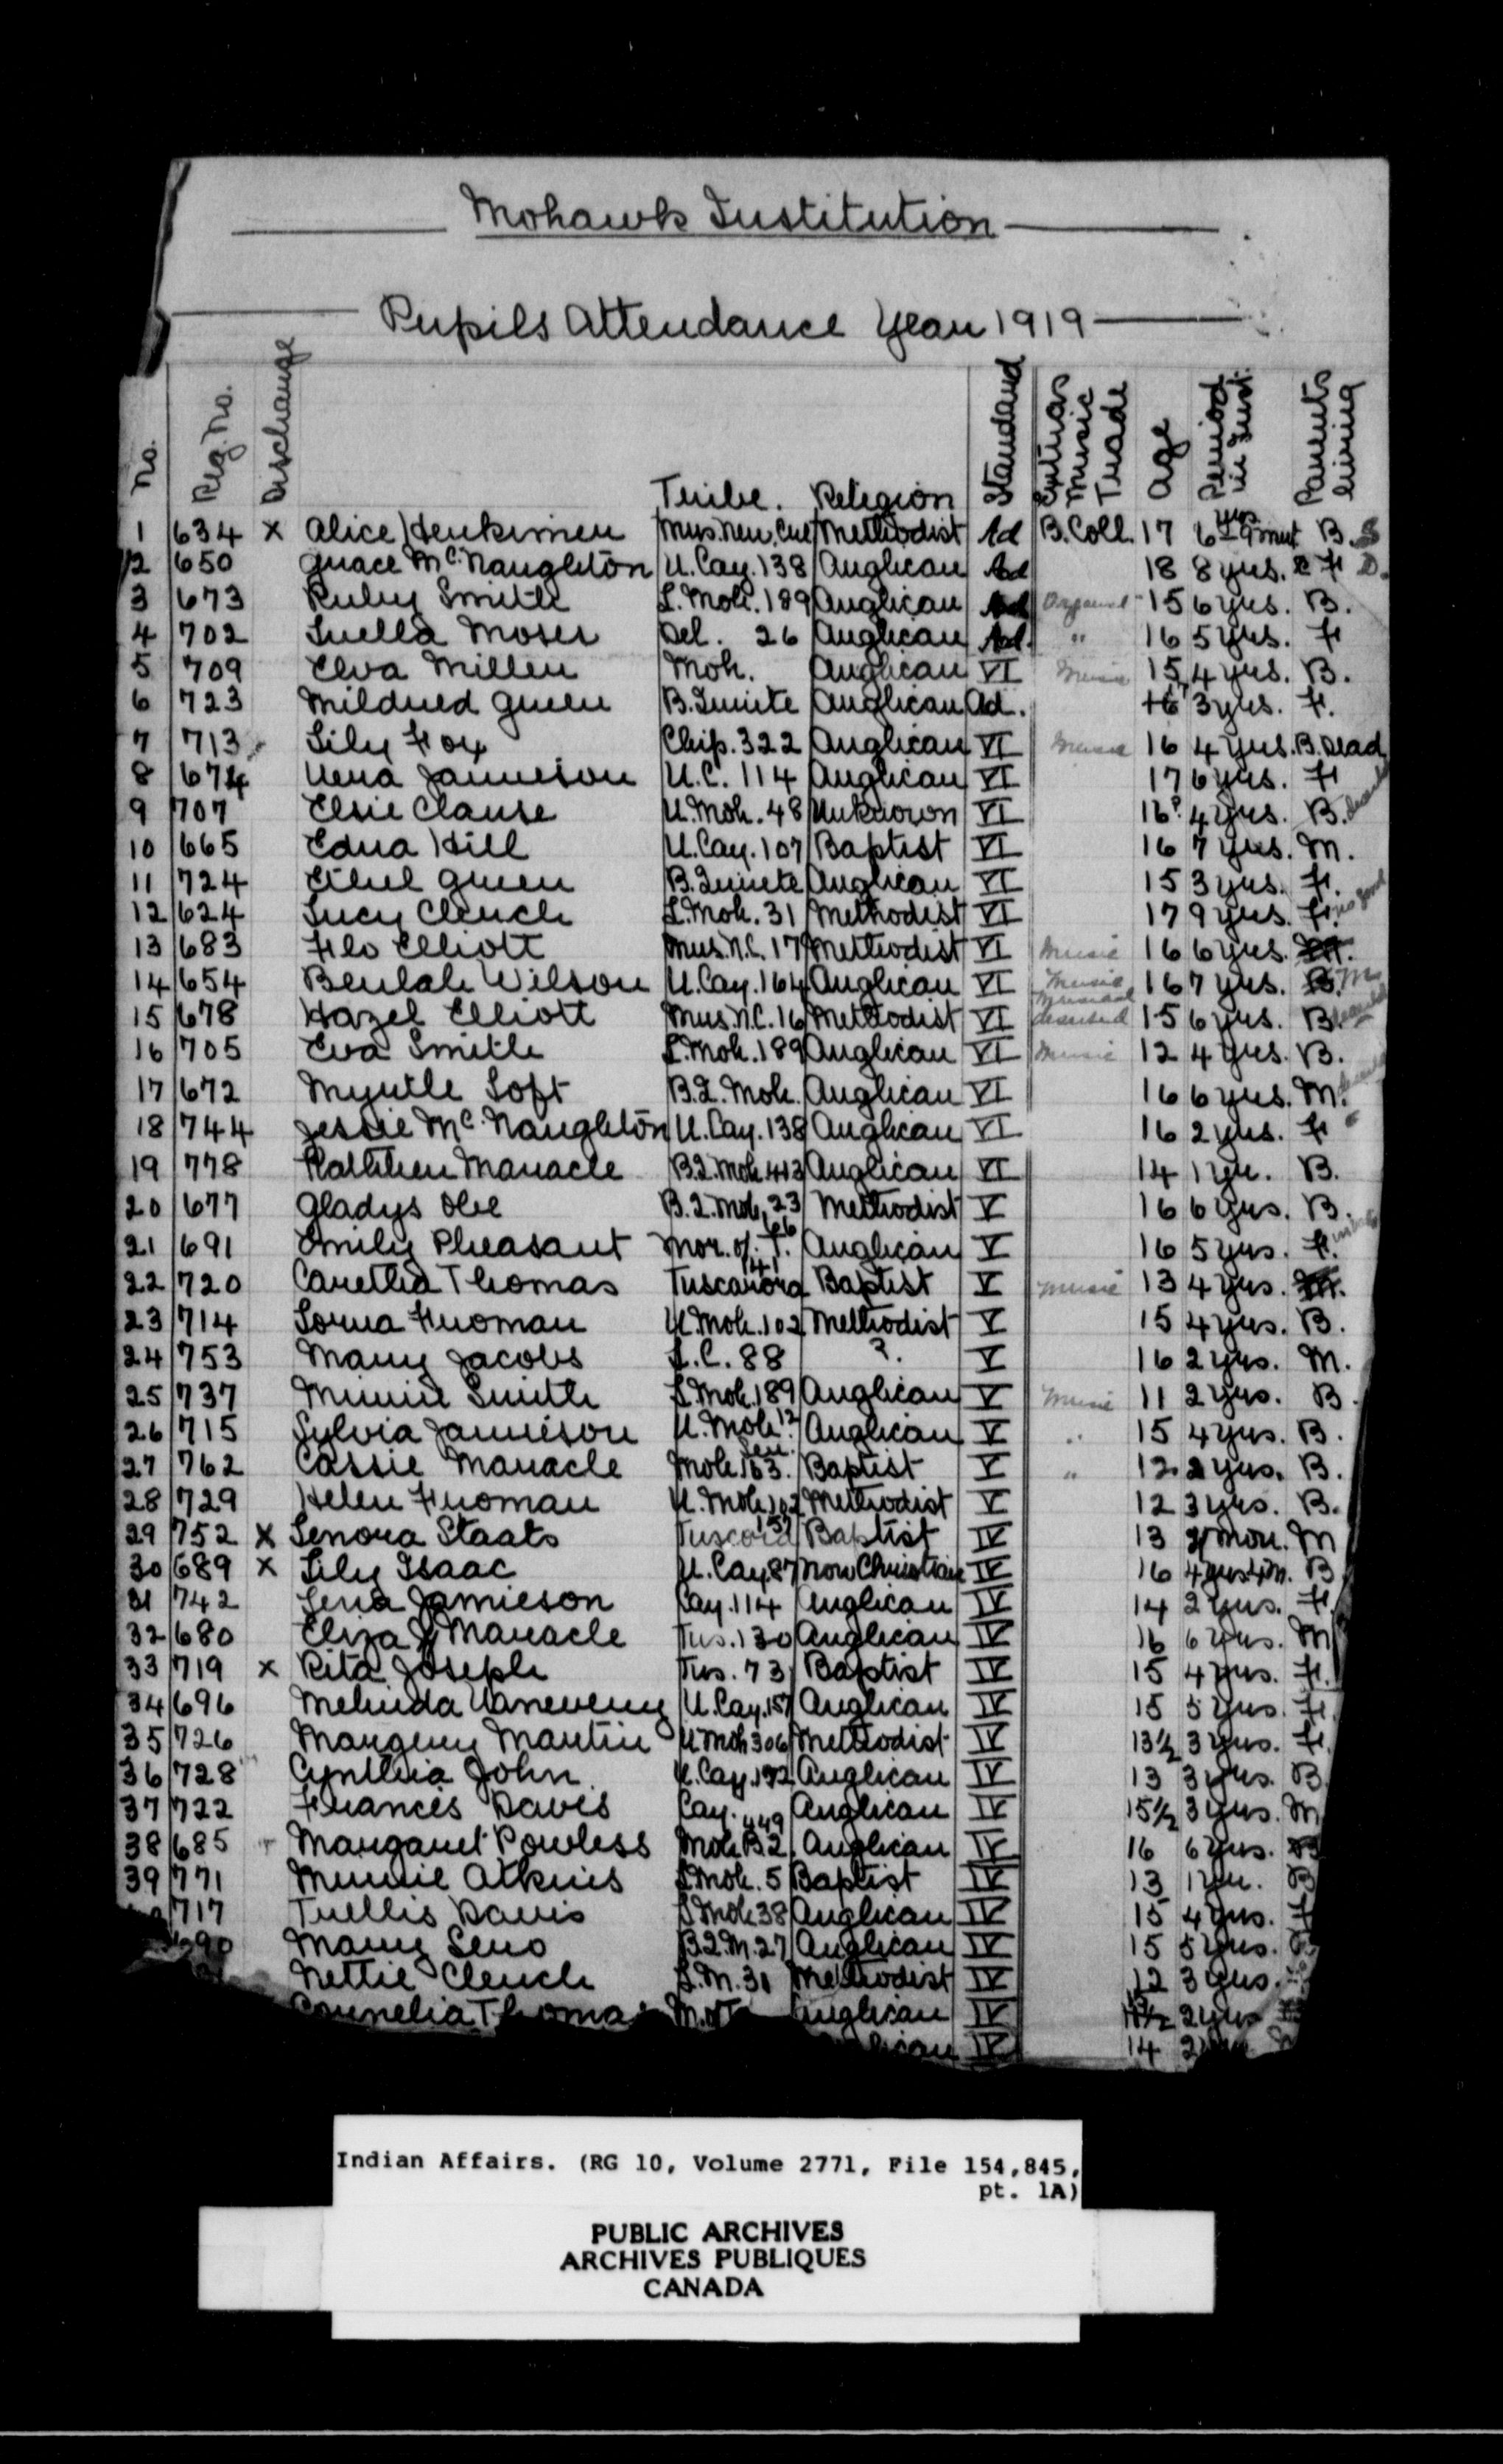 Mohawk Institution
Pupils Attendance Year 1919
No. Reg. No. Discharge Tribe. Religion Standard Extras Music Trade Age Period in Inst. Parents living
1 634 x Alice Henkimen Mus. Methodist Ad B. Coll. 17 6 yrs 9 B.
2 650 Grace McNaughton U. Cay. 138 Anglican Ad 18 8 yrs. F D.
3 673 Ruby Smith L. Moh. 189 Anglican Ad 15 6 yrs. B.
4 702 Luella Moses Del. 26 Anglican Ad. " 16 5 yrs. F
5 709 Elva Miller Moh. Anglican VI Music 15 4 yrs. B.
6 723 Mildred Green B. Quinte Anglican Ad. 3 yrs. F.
7 713 Lily Fox Chip. 322 Anglican VI Music 16 4 yrs. B. Dead
8 674 Vera Jamieson U. C. 114 Anglican VI 17 6 yrs. F
9 707 Elsie Clause U. Moh. 48 Unknown VI 16? 4 yrs. B.
10 665 Edna Hill U. Cay. 107 Baptist VI 16 7 yrs. M.
11 724 Ethel Green B. Quinte Anglican VI 15 3 yrs. F.
12 624 Lucy Clench L. Moh. 31 Methodist VI 17 9 yrs. F.
13 683 Flo Elliott Mus. N.C. 17 Methodist VI Music 16 6 yrs.
14 654 Beulah Wilson U. Cay. 164 Anglican VI Music 16 7 yrs. M
15 678 Hazel Elliott Mus. N.C. 16 Methodist VI deserted 15 6 yrs. B.
16 705 Eva Smith L. Moh. 189 Anglican VI Music 12 4 yrs. B.
17 672 Myrtle Loft B.Q. Moh. Anglican VI 16 6 yrs. M.
18 744 Jessie McNaughton U. Cay. 138 Anglican VI 16 2 yrs. F
19 778 Kathleen Maracle B.Q. Moh 413 Anglican VI 14 1 yr. B.
20 677 Gladys Obe B.Q. Moh. 23 Methodist V 16 6 yrs. B.
21 691 Emily Pheasant Mor. of T. 66 Anglican V 16 5 yrs. F.
22 720 Caretha Thomas Tuscarora 141 Baptist V Music 13 4 yrs.
23 714 Lorna Froman U. Moh. 102 Methodist V 15 4 yrs. B.
24 753 Mary Jacobs L. C. 88 ?. V 16 2 yrs. M.
25 737 Minnie Smith L. Moh. 189 Anglican V Music 11 2 yrs. B.
26 715 Sylvia Jamieson U. Moh. 12 Anglican V " 15 4 yrs. B.
27 762 Cassie Maracle Moh. 163. Baptist V " 12. 2 yrs. B.
28 729 Helen Froman U. Moh. 102 Methodist V 12 3 yrs. B.
29 752 x Lenora Staats 157 Baptist IV 13 mon. M
30 689 x Lily Isaac U. Cay. 87 Non Christian IV 16 4 yrs 4 m. B
31 742 Lena Jamieson Cay. 114 Anglican IV 14 2 yrs. F.
32 680 Eliza J Maracle Tus. 130 Anglican IV 16 6 yrs. M
33 719 x Rita Joseph Tus. 73 Baptist IV 15 4 yrs. F.
34 696 Melinda Vanevery U. Cay. 157 Anglican IV 15 5 yrs. F.
35 726 Margery Martin U Moh 306 Methodist IV 13½ 3 yrs. F.
36 728 Cynthia John U. Cay. 192 Anglican IV 13 3 yrs. B.
37 722 Frances Davis Cay. Anglican IV 15½ 3 yrs. M
38 685 Margaret Powless Moh. B.Q. 449 Anglican IV 16 6 yrs. B
39 771 Minnie Atkins L Moh. 5 Baptist IV 13 1 yr. B
717 Tuellis Davis L Moh 38 Anglican IV 15 4 yrs. F
690 Mary Sero B.Q. M. 27 Anglican IV 15 5 yrs.
Nettie Clench L. M. 31 Methodist IV 12 3 yrs.
Cornelia Thomas Anglican IV 2 yrs
IV 14 2
Indian Affairs. (RG 10, Volume 2771, File 154,845,
pt. 1A)
PUBLIC ARCHIVES
ARCHIVES PUBLIQUES
CANADA